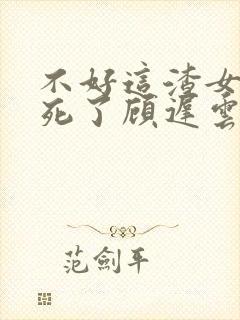 不好這渣女
死了顾遲雲
范劍平